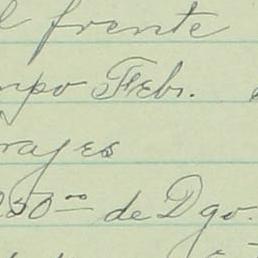 l frente
mpo Febr.
rajes
250⁰⁰ de Dgo.